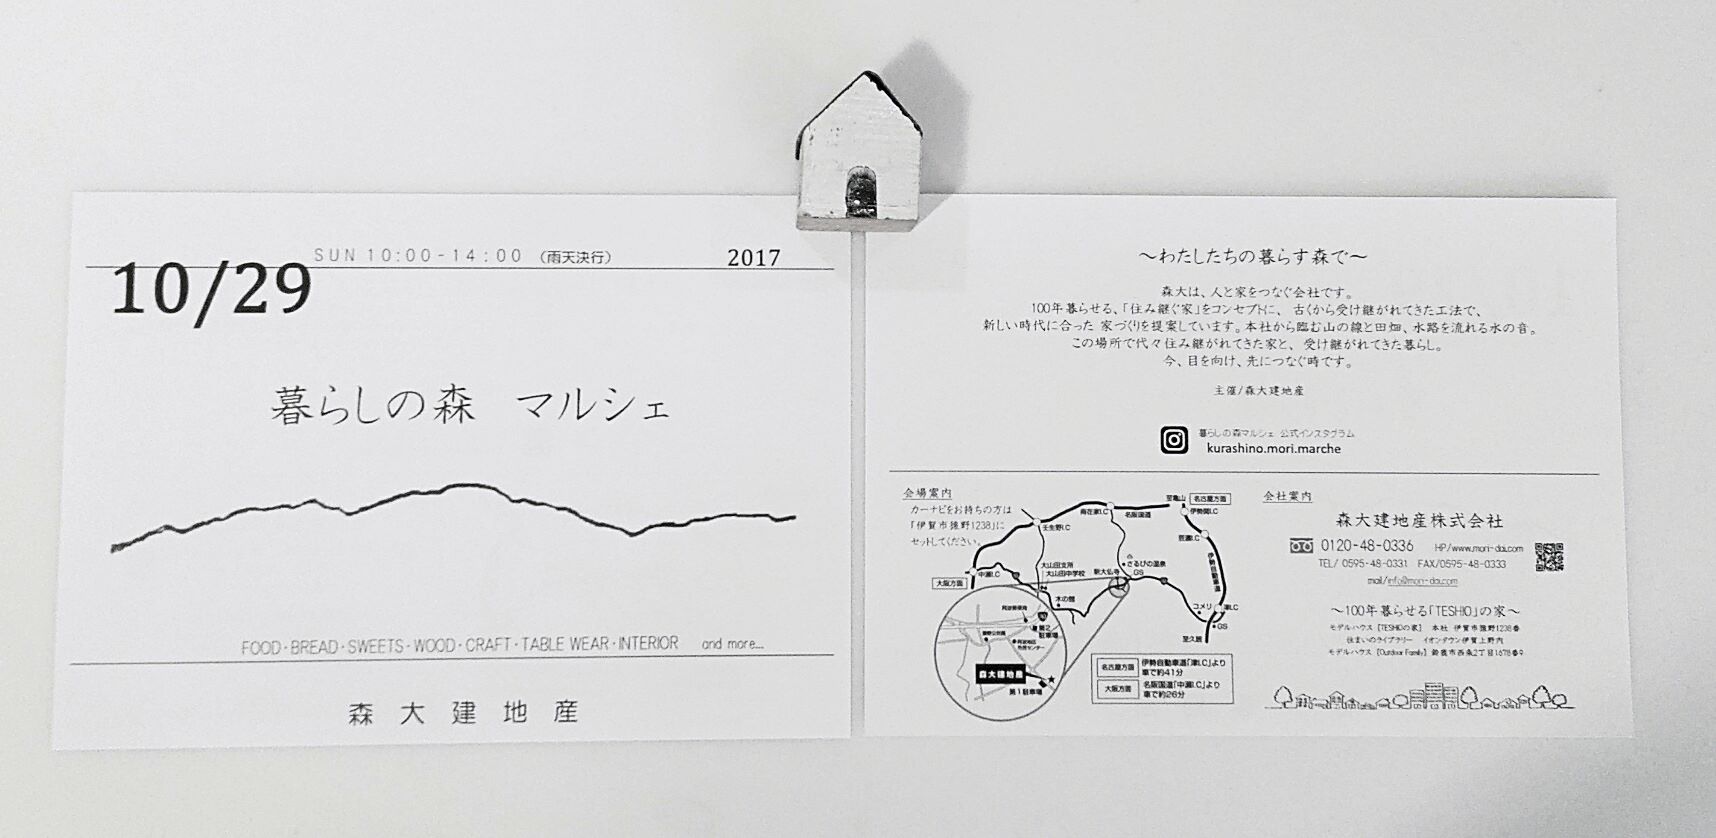 SUN 10:00-14:00 （雨天決行）
2017
10/29
暮らしの森 マルシェ
FOOD・BREAD・SWEETS・WOOD・CRAFT・TABLE WEAR・INTERIOR and more...
森大建地産
～わたしたちの暮らす森で～
森大は、人と家をつなぐ会社です。
100年暮らせる、「住み継ぐ家」をコンセプトに、古くから受け継がれてきた工法で、
新しい時代に合った 家づくりを提案しています。本社から臨む山の線と田畑、水路を流れる水の音。
この場所で代々住み継がれてきた家と、受け継がれてきた暮らし。
今、目を向け、先につなぐ時です。
主催/森大建地産
暮らしの森マルシェ 公式インスタグラム
kurashino.mori.marche
会場案内
カーナビをお持ちの方は
「伊賀市猿野1238」に
セットしてください。
至亀山
名古屋方面
伊勢関I.C
南在家I.C
名阪国道
壬生野I.C
芸濃I.C
伊勢自動車道
大山田支所
大山田中学校
新大仏寺
さるびの温泉
GS
中瀬I.C
大阪方面
木の館
コメリ
津I.C
GS
至久居
阿波郵便局
第2
駐車場
森大建地産
第1駐車場
名古屋方面 伊勢自動車道「津I.C」より
車で約41分
大阪方面 名阪国道「中瀬I.C」より
車で約26分
会社案内
森大建地産株式会社
0120-48-0336 HP/www.mori-dai.com
TEL/ 0595-48-0331 FAX/0595-48-0333
mail/info@mori-dai.com
～100年暮らせる「TESHIO」の家～
モデルハウス [TESHIOの家] 本社 伊賀市猿野1238番
住まいのライブラリー イオンタウン伊賀上野内
モデルハウス [Outdoor Family] 鈴鹿市西条2丁目1678番9